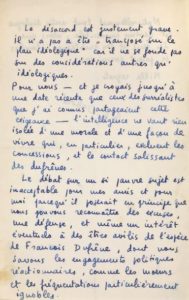 Le désaccord est justement grave.
Il n'a pas à être "transposé sur le
plan idéologique" car il ne se fonde pas
sur des considérations autres qu'
idéologiques.
Pour nous — et je croyais jusqu'à
une date récente que ceux des surréalistes
que j'ai connus partageaient cette
exigence — l'intelligence ne vaut rien
isolée d'une morale et d'une façon de
vivre qui, en particulier, excluent les
concessions, et le contact salissant
des
Le débat sur un si pauvre sujet est
inacceptable pour mes amis et pour
moi parce qu'il poserait en principe que
nous pouvons reconnaître des excuses,
une défense, et même un intérêt
éventuel à des êtres avilis de l'espèce
de François Dufrêne, dont nous
savons les engagements politiques
réactionnaires, comme les mœurs
et les fréquentations particulièrement
ignobles.